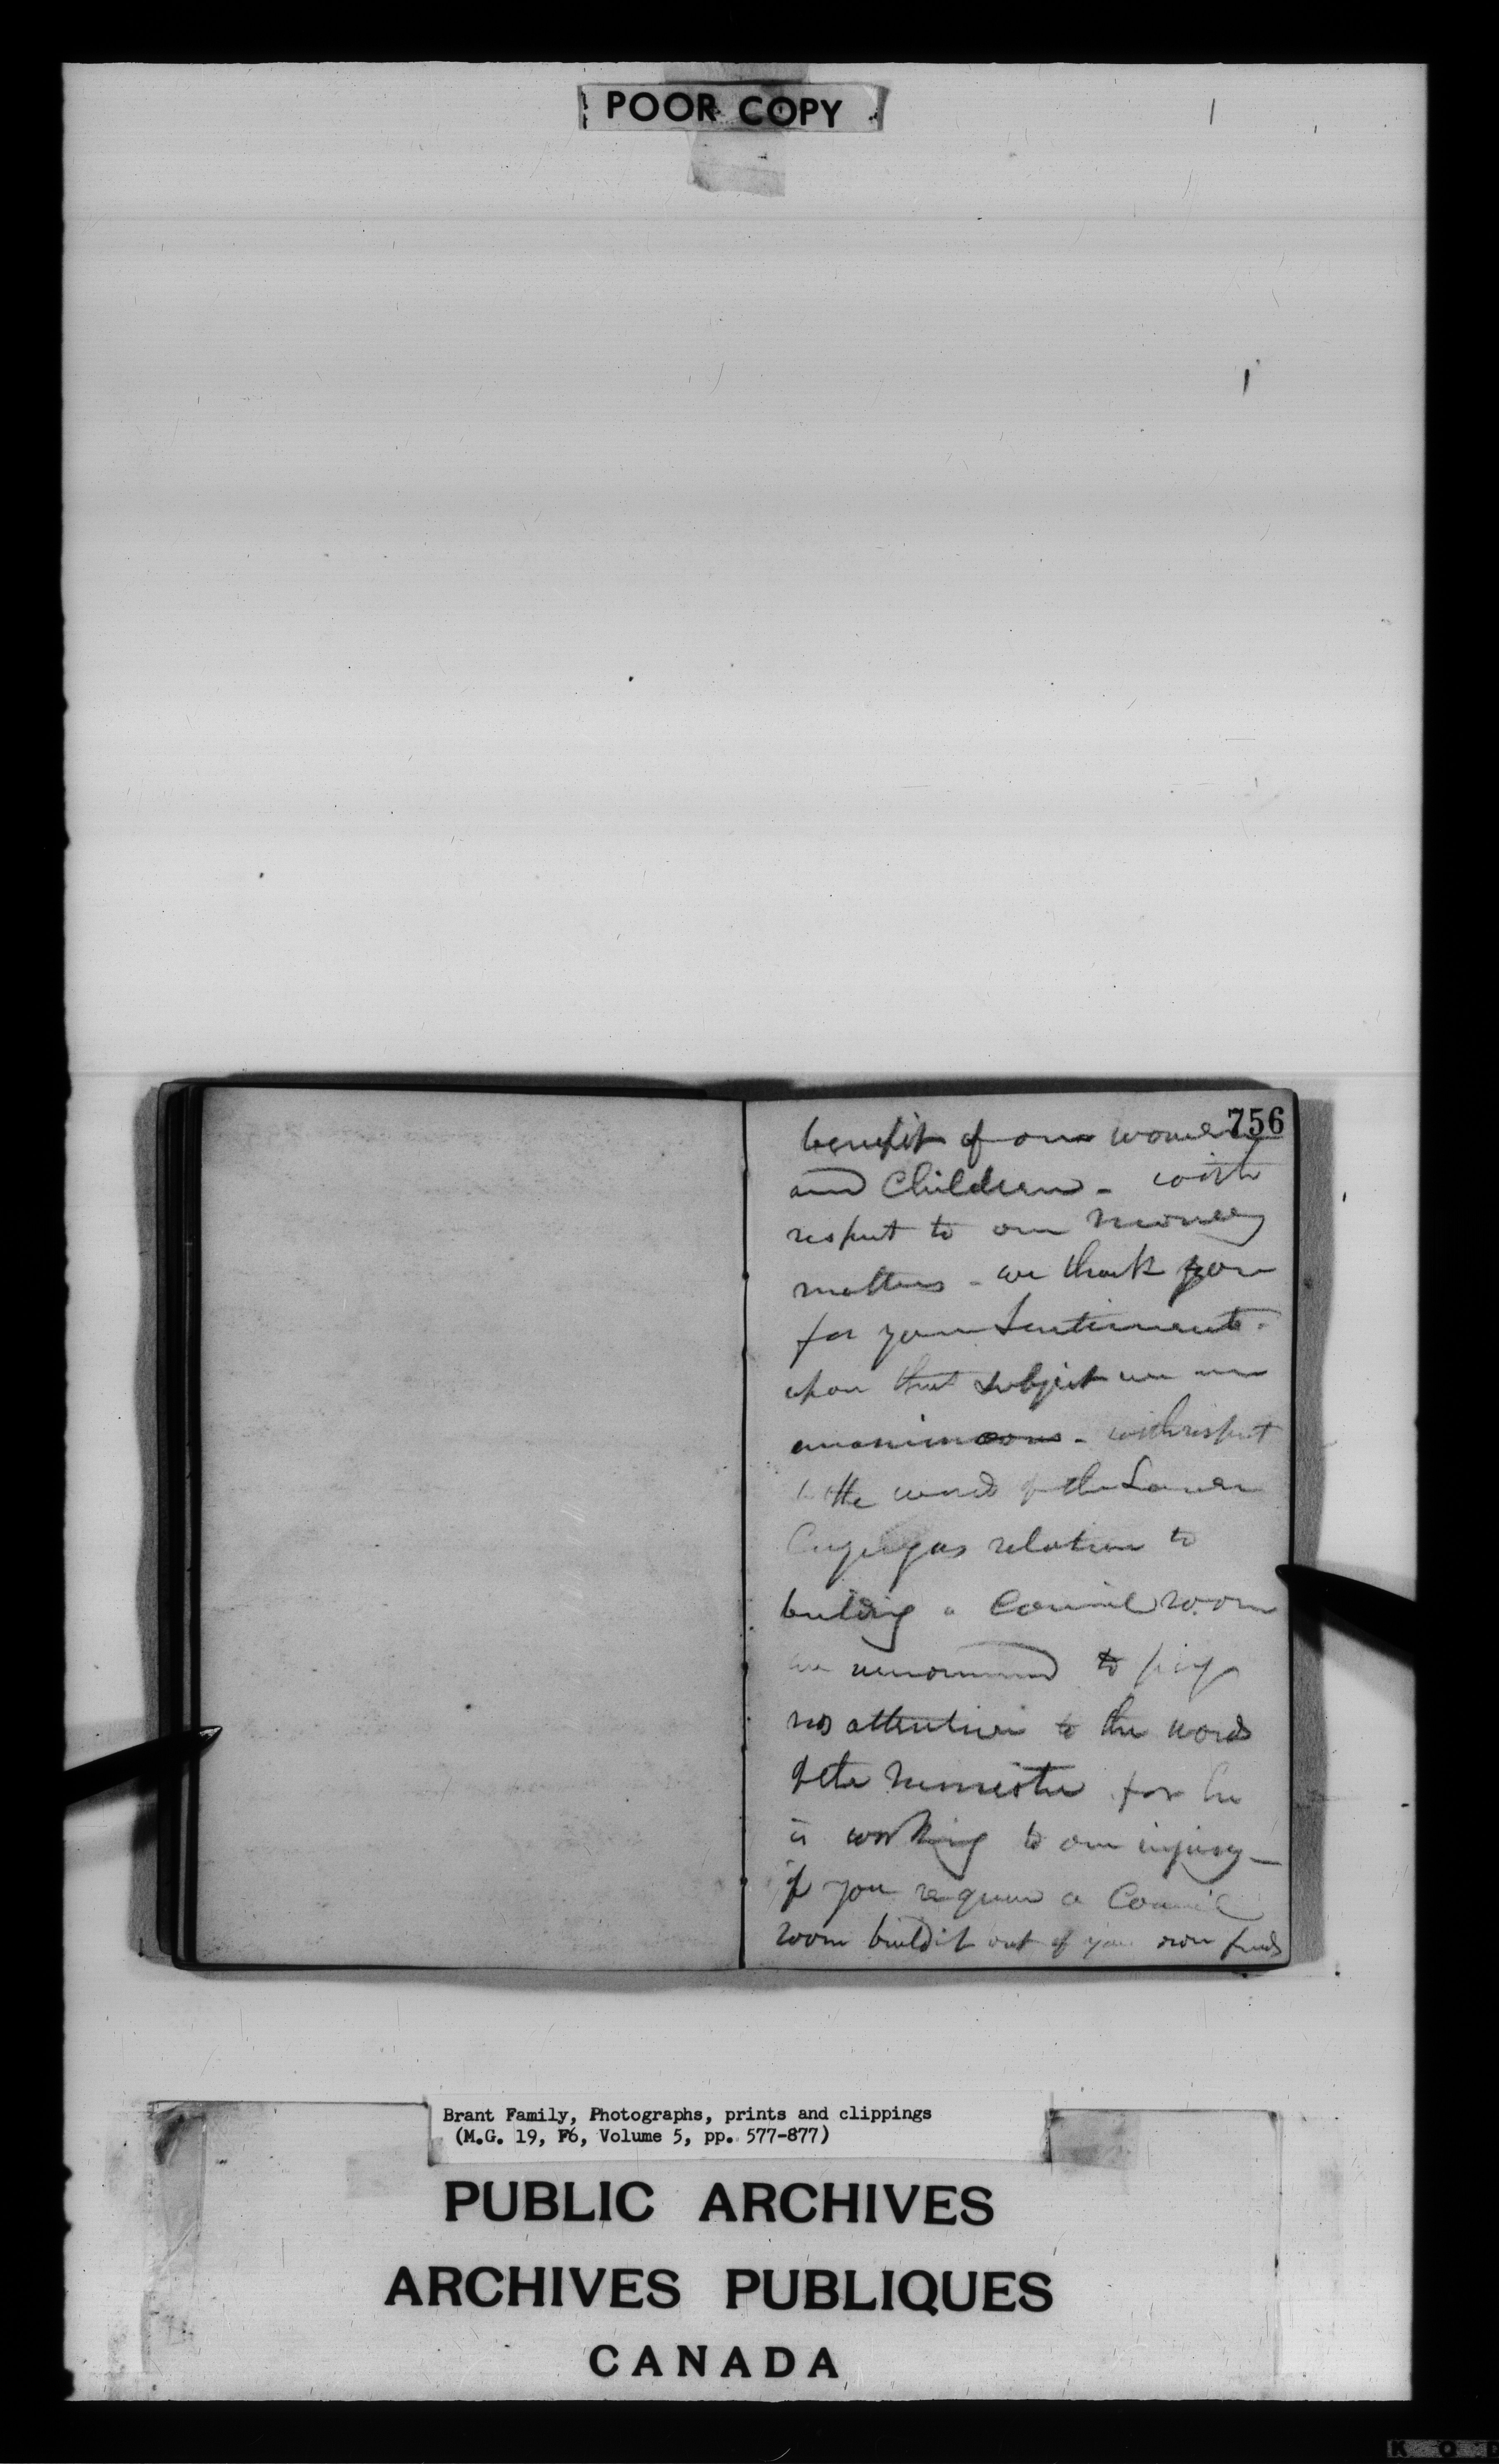 POOR COPY
756
benefit of our women
and Children - with
respect to our money
matters - we thank you
for your Sentiments -
upon that subject we are
unanimous - with respect
to the words of the Lower
Cayugas relation to
building a Council room
we recommend to pay
no attention to the words
of the minister for he
is working to our injury -
if you require a Council
room build it out of your own funds
Brant Family, Photographs, prints and clippings
(M.G. 19, F6, Volume 5, pp. 577-877)
PUBLIC ARCHIVES
ARCHIVES PUBLIQUES
CANADA